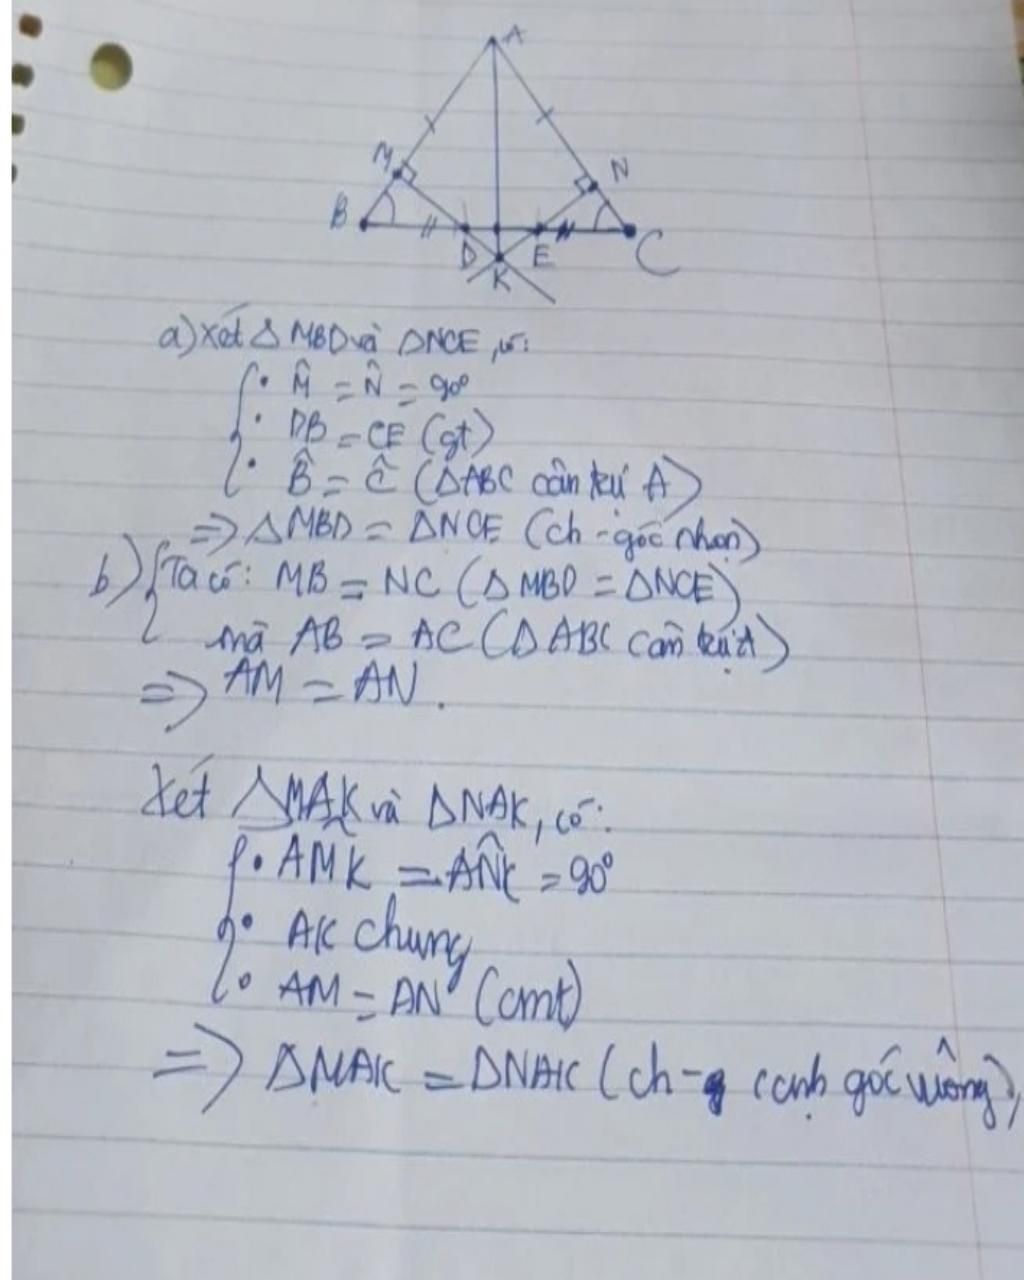 A
M
N
B
D
E
C
K
a) Xét Δ MBD và ΔNCE, có:
• M̂ = N̂ = 90°
• DB = CE (gt)
• B̂ = Ĉ (ΔABC cân tại A)
=> ΔMBD = ΔNCE (ch - góc nhọn)
b) Ta có: MB = NC (Δ MBD = ΔNCE)
mà AB = AC (ΔABC cân tại A)
=> AM = AN.
Xét ΔMAK và ΔNAK, có:
• AM̂K = AN̂K = 90°
• AK chung
• AM = AN (cmt)
=> ΔMAK = ΔNAK (ch - cạnh góc vuông),